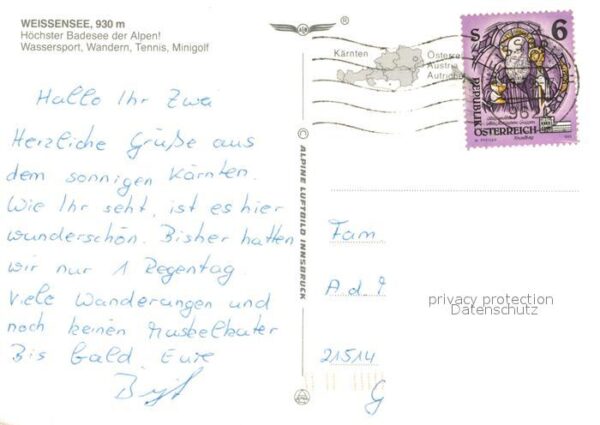 WEISSENSEE, 930 m
Höchster Badesee der Alpen!
Wassersport, Wandern, Tennis, Minigolf
Hallo Ihr Zwei
Herzliche Grüße aus
dem sonnigen Kärnten.
Wie Ihr seht, ist es hier
wunderschön. Bisher hatten
wir nur 1 Regentag.
Viele Wanderungen und
noch keinen Muskelkater
Bis bald. Eure
ALPINE LUFTBILD INNSBRUCK
Kärnten
Österre
Austria
Autriche
S 6
REPUBLIK
ÖSTERREICH
Fam.
A d. I
privacy protection
Datenschutz
21514
G